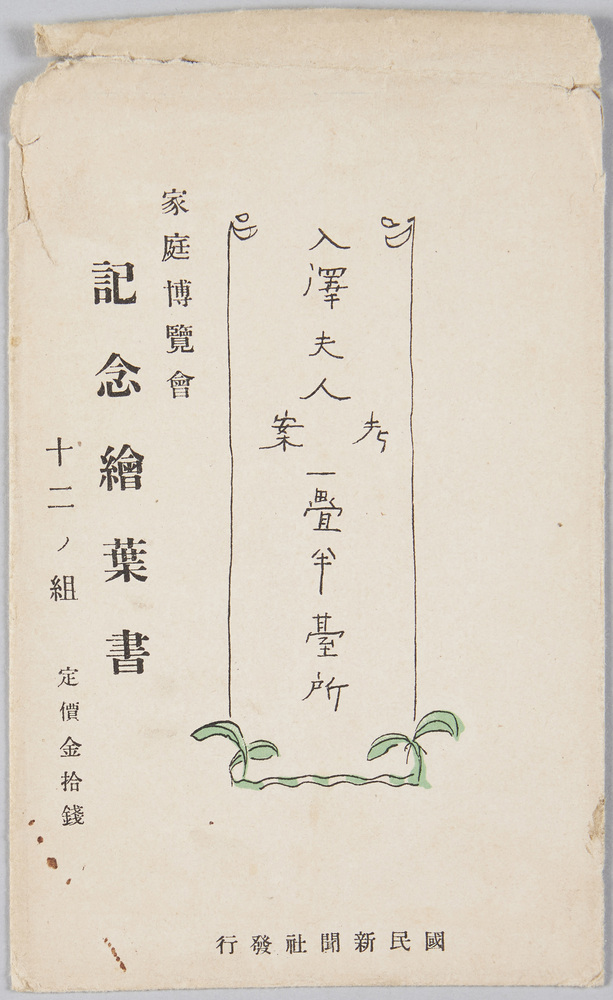 入澤夫人
考案
一疊半臺所
家庭博覽會
記念繪葉書
十二ノ組
定價金拾錢
國民新聞社發行